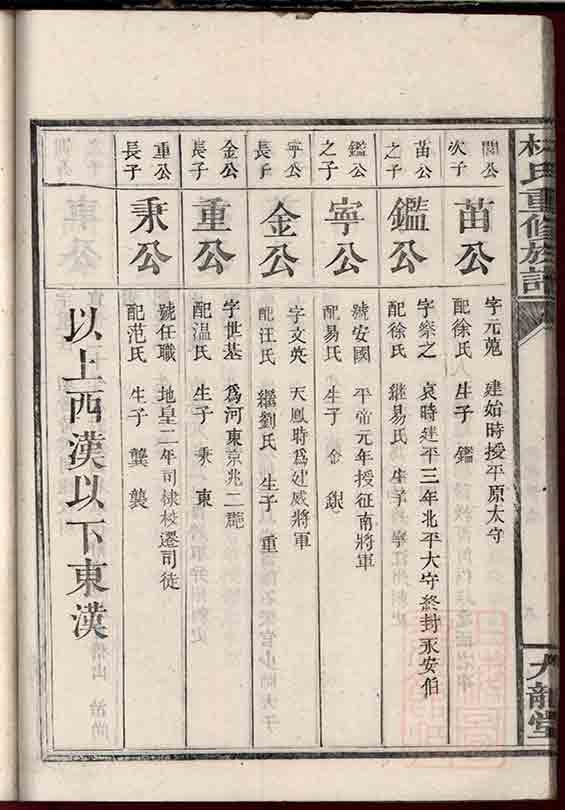 林氏重修族譜
九龍堂
閎公
次子
苗公
字元蒐 建始時授平原太守
配徐氏 生子 鑑
苗公
之子
鑑公
字樂之 哀時建平三年北平大守終封永安伯
配徐氏 継易氏 生子 寧
鑑公
之子
寧公
號安國 平帝元年授征南將軍
配易氏 生子 金 銀
寧公
長子
金公
字文英 天鳳時爲建威將軍
配汪氏 繼劉氏 生子 重
金公
長子
重公
字世基 爲河東京兆二郡
配温氏 生子 秉 東
重公
長子
秉公
號任職 地皇二年司棣校遷司徒
配范氏 生子 龔 襲
以上西漢以下東漢